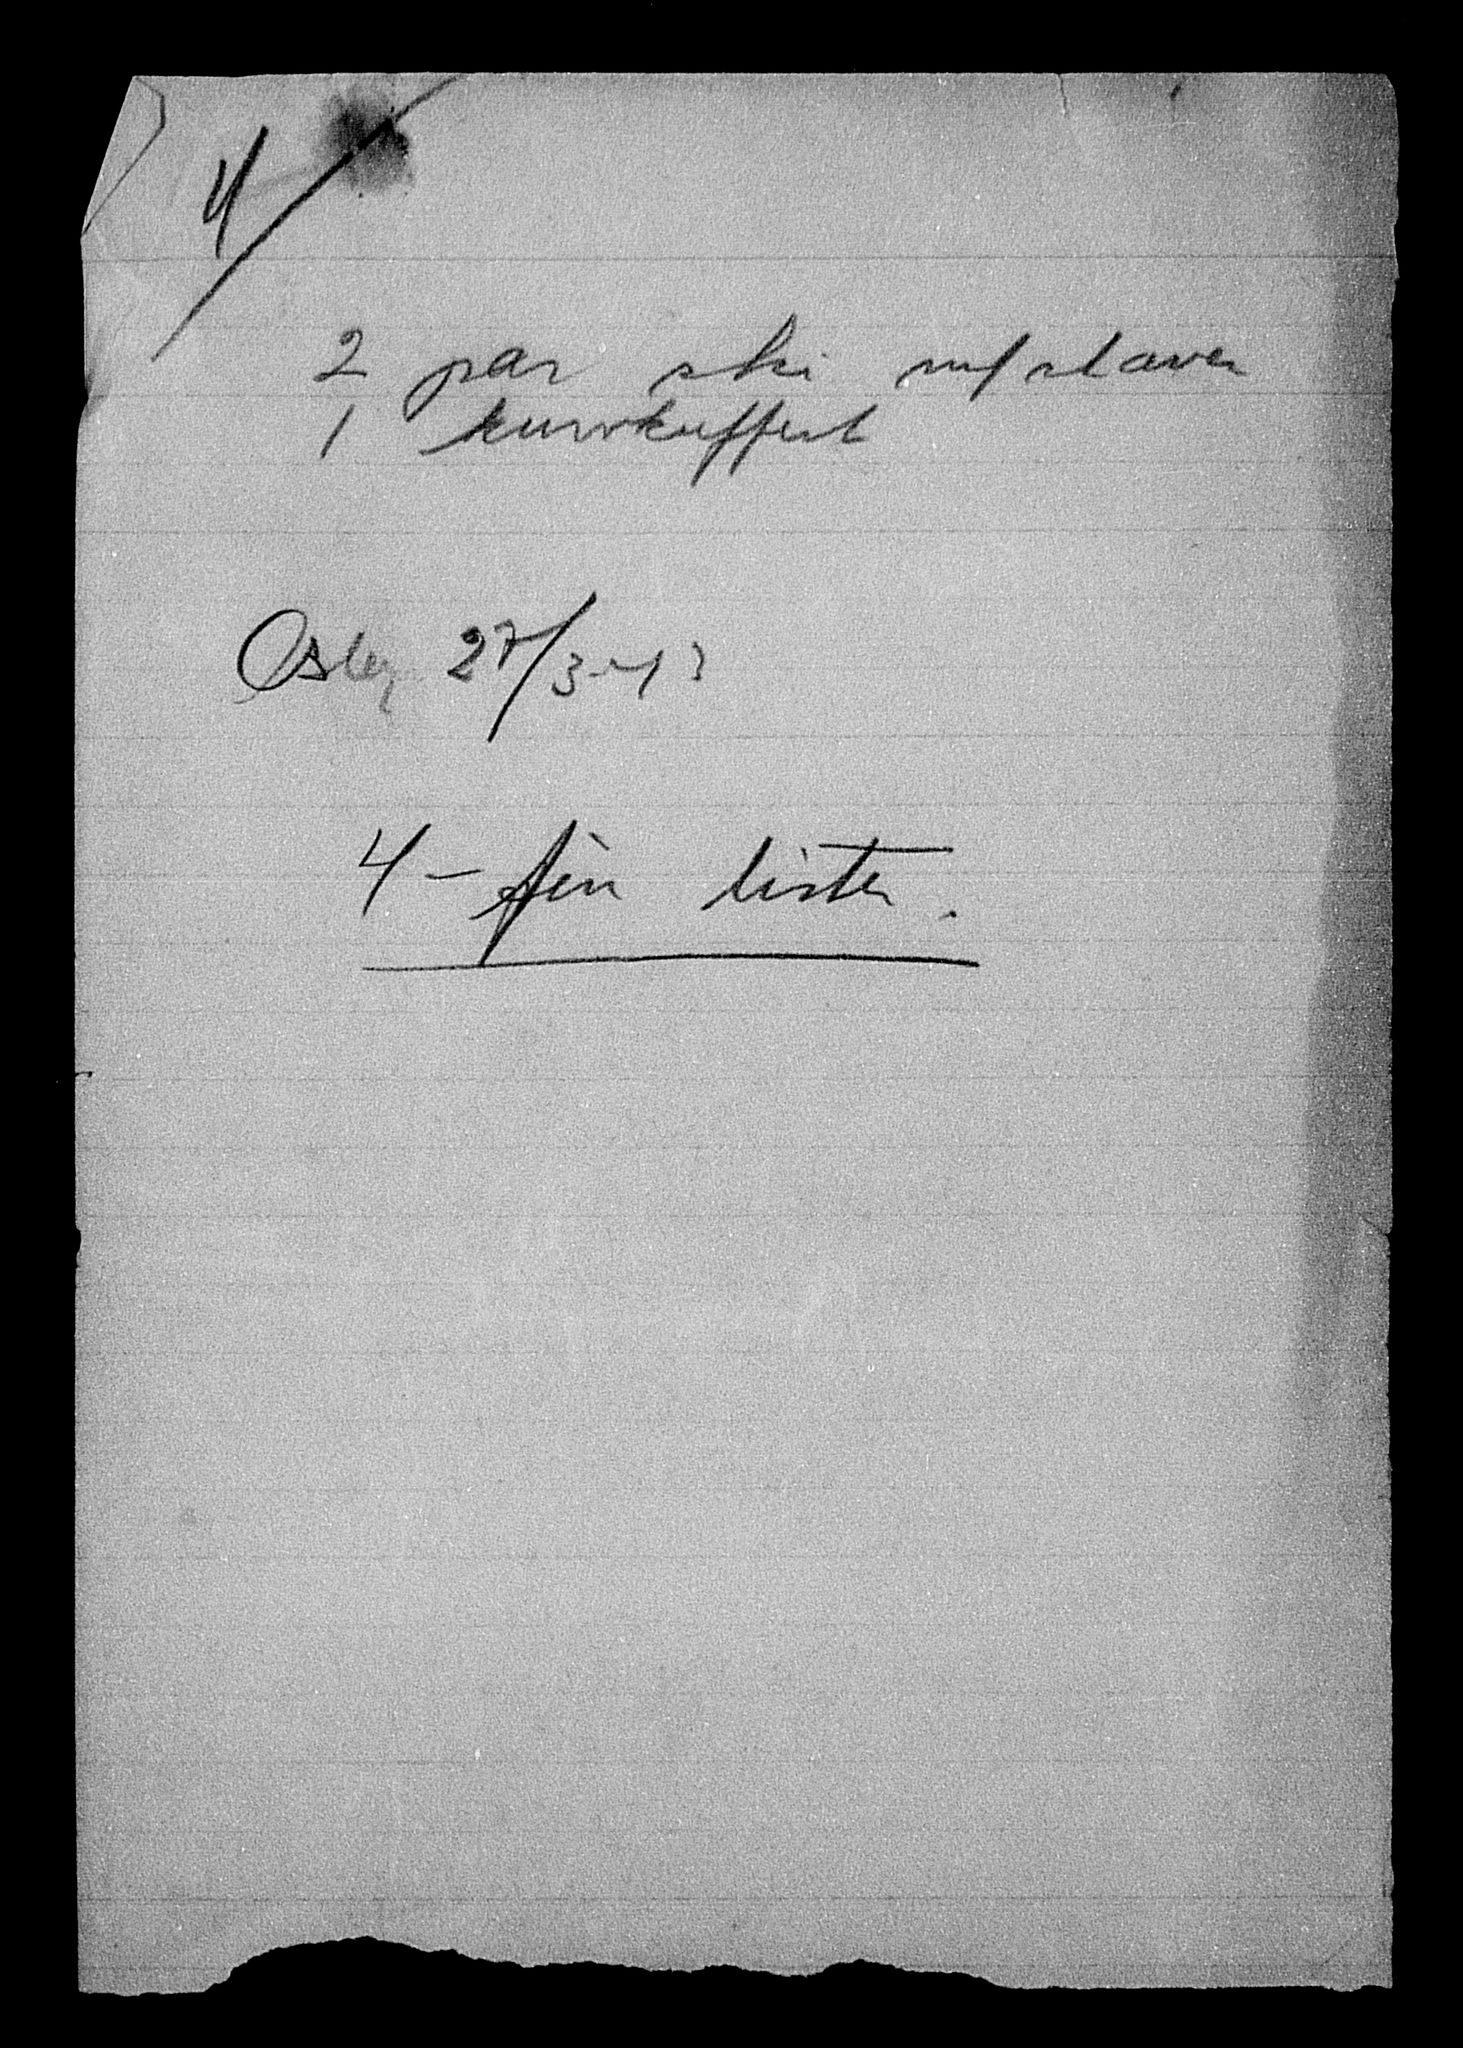 4/
2 par ski m/staver
1 kurvkuffert
Oslo, 27/3-43
4 - fire lister.